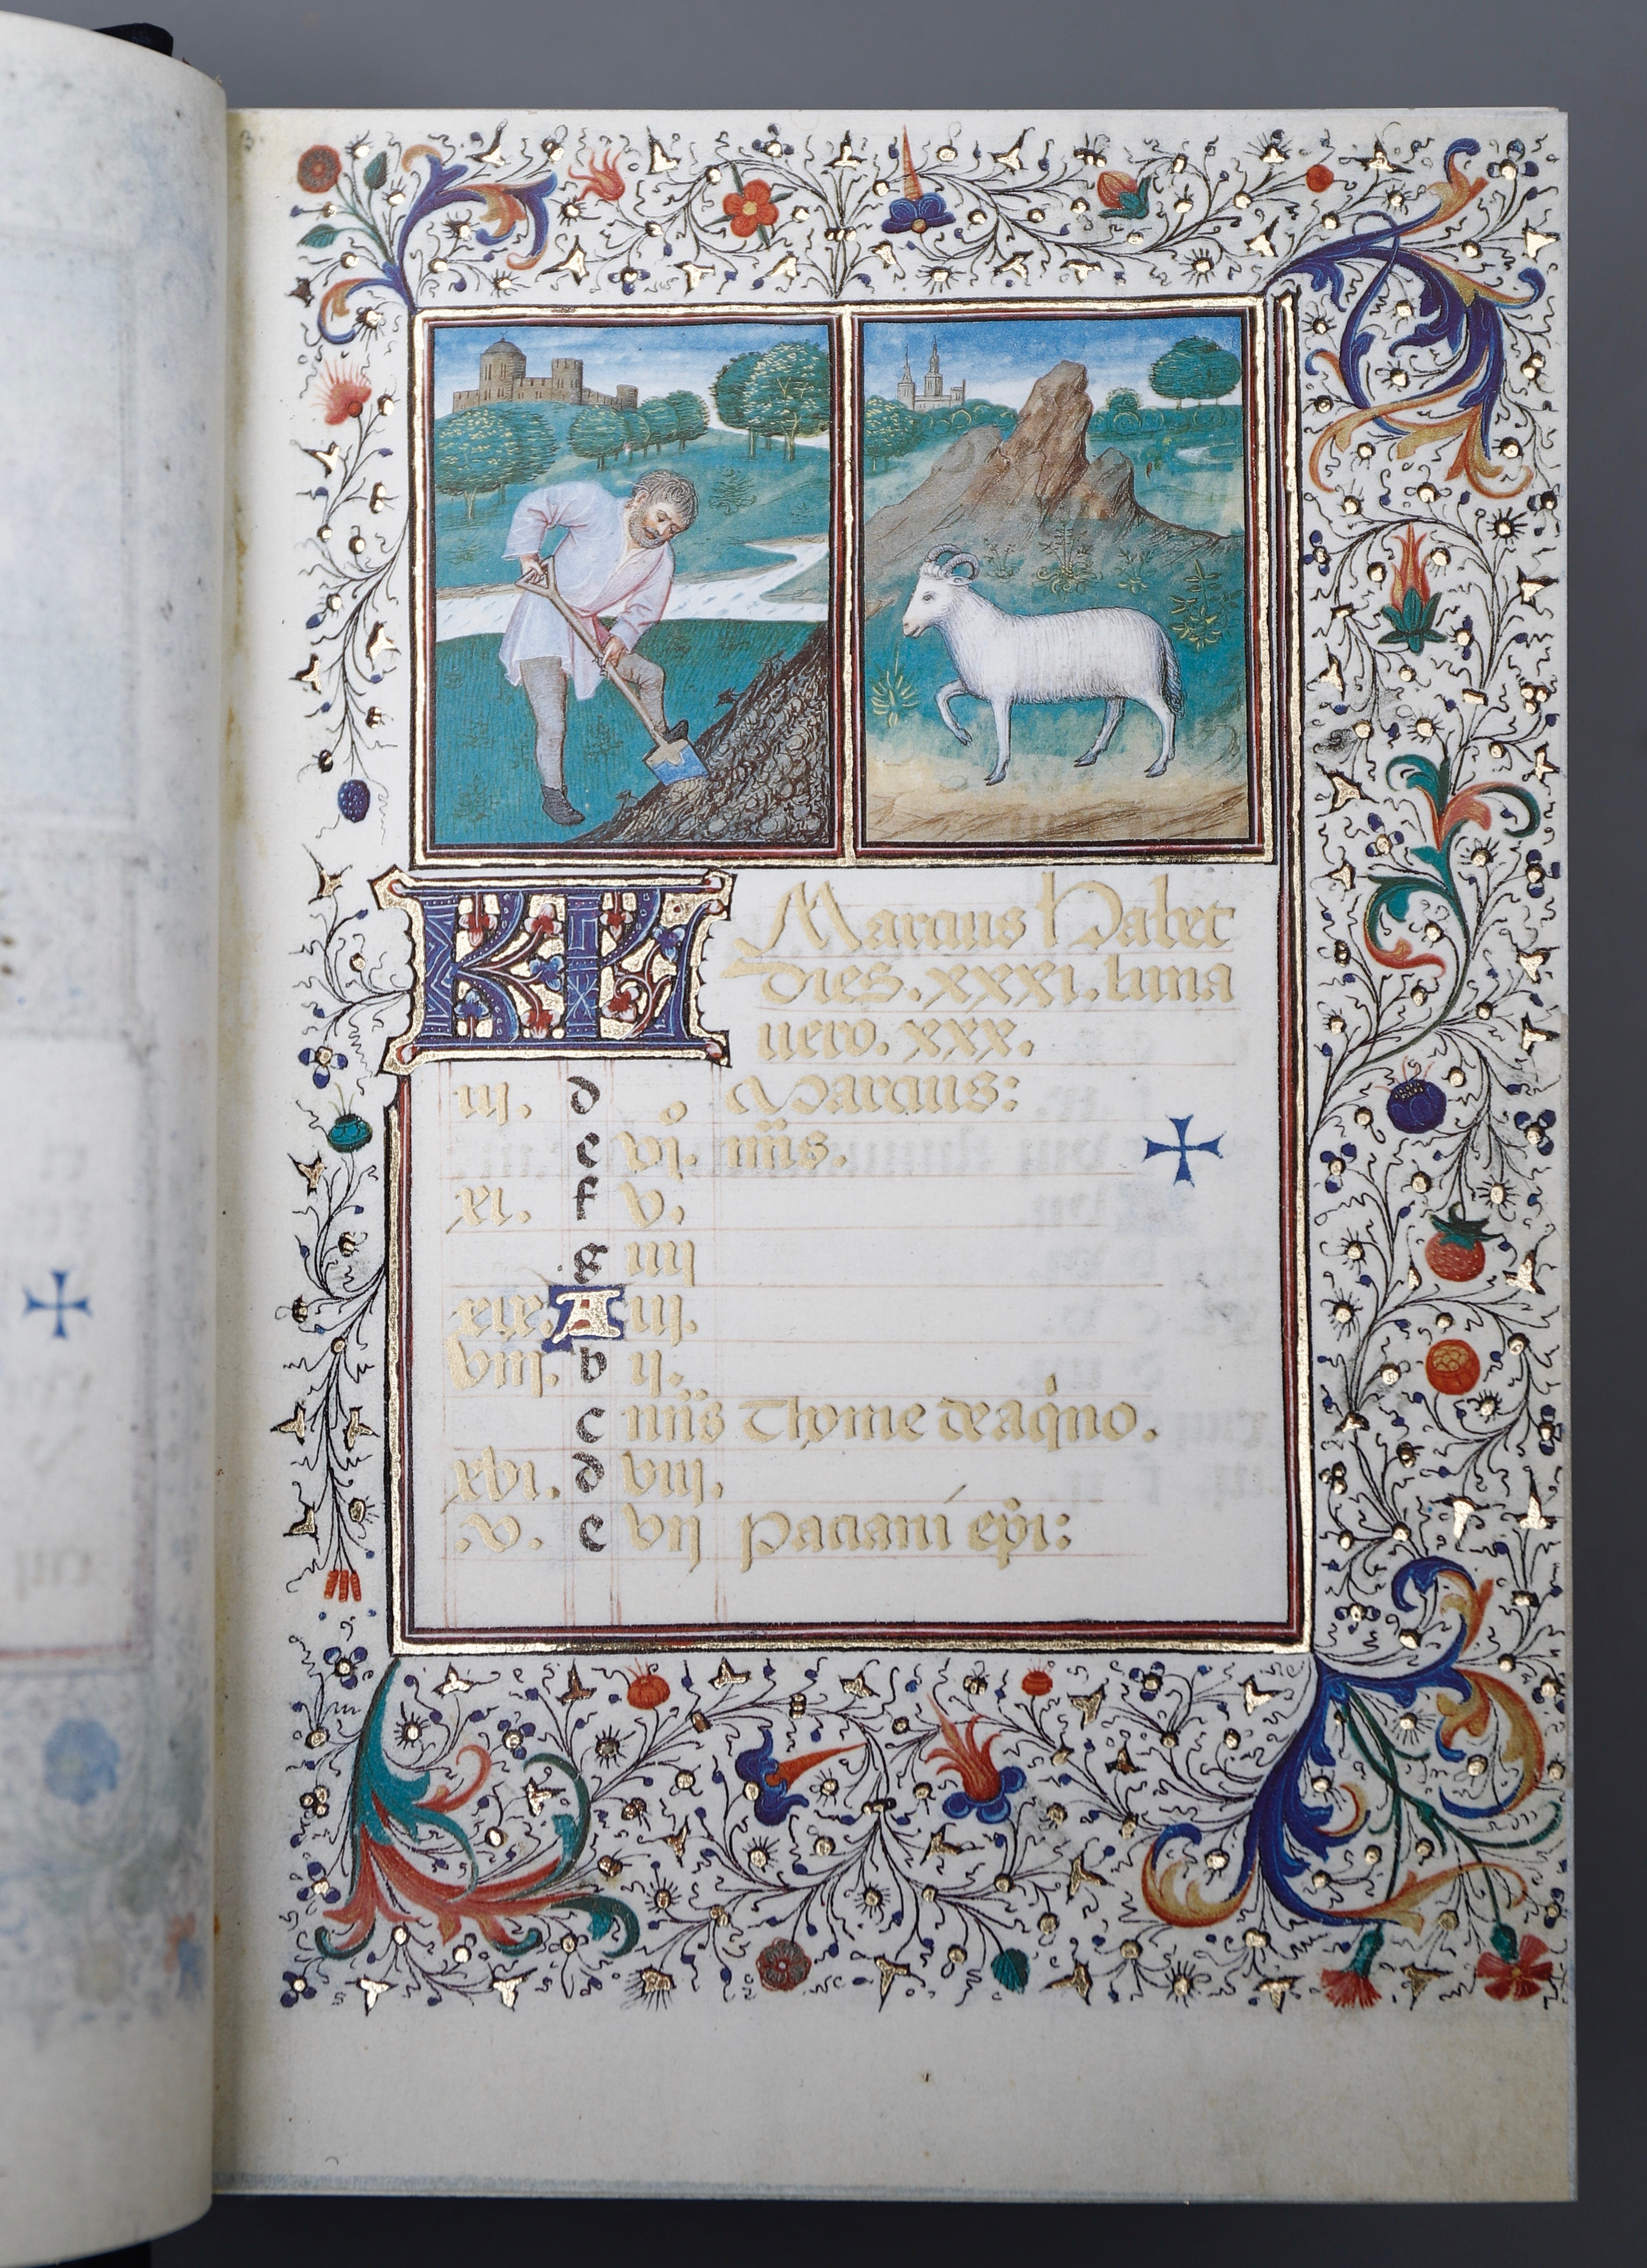 KL Marcius Habet
dies. xxxi. luna
uero. xxx.
iij. d Marcius:
e vj. nŏs.
xi. f v.
g iiij
xix. A iij.
viij. b ij.
c nŏs Thome de aq̇no.
xvi. d viij.
.v. e vij Paciani ep̄i:
3